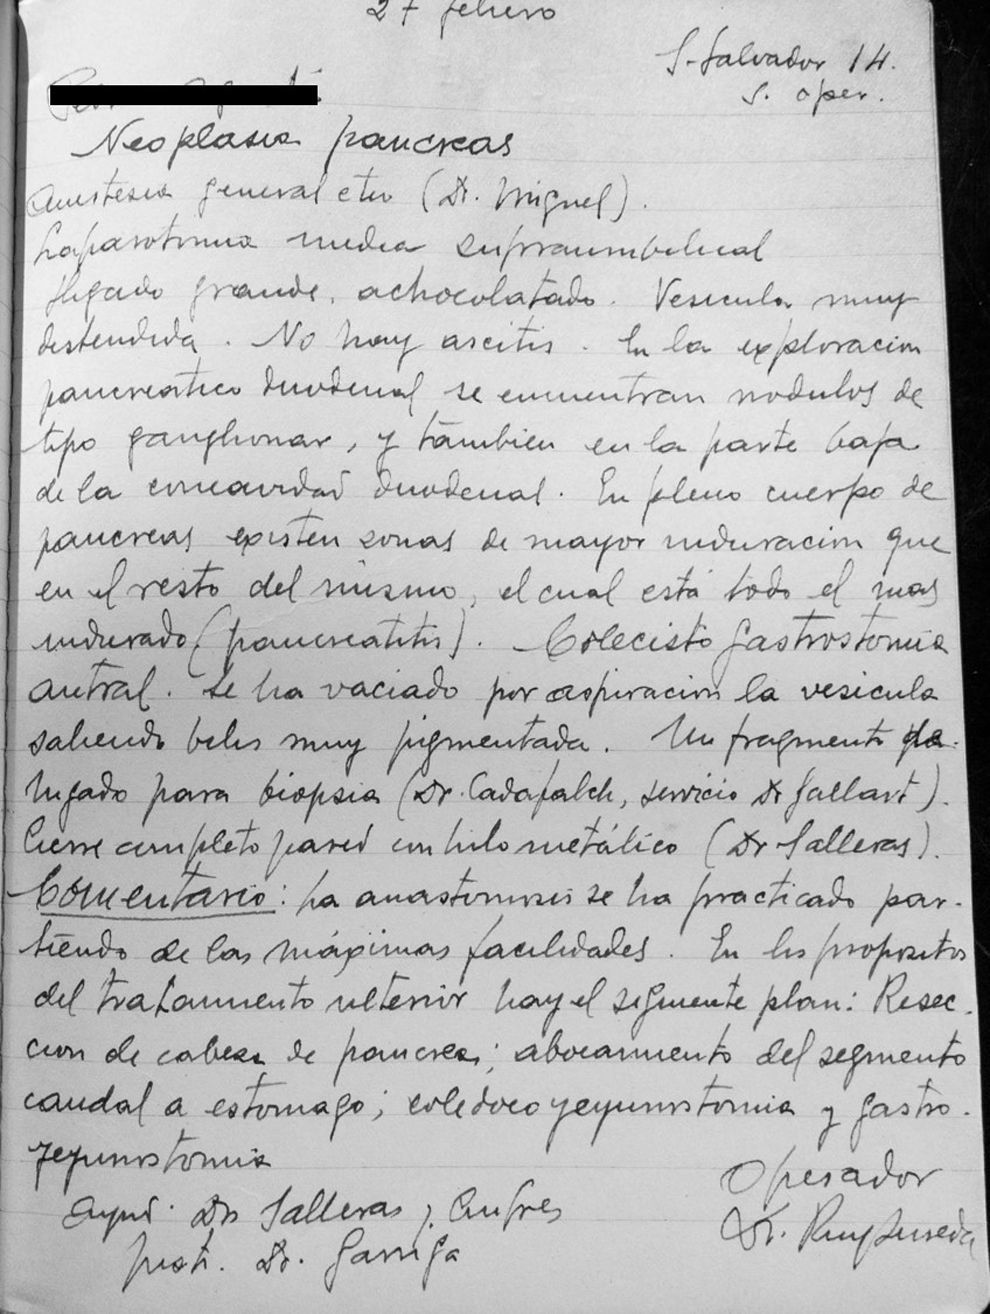 27 febrero
S. Salvador 14.
S. oper.
Neoplasia pancreas
Anestesia general eter (Dr. Miguel).
Laparotomia media supraumbilical
Higado grande, achocolatado. Vesicula muy
distendida. No hay ascitis. En la exploracion
pancreatico duodenal se encuentran nodulos de
tipo ganglionar, y tambien en la parte baja
de la concavidad duodenal. En pleno cuerpo de
pancreas existen zonas de mayor induracion que
en el resto del mismo, el cual está todo el mas
indurado (pancreatitis). Colecisto gastrostomia
antral. Se ha vaciado por aspiracion la vesicula
saliendo bilis muy pigmentada. Un fragmento
hígado para biopsia (Dr. Cadafalch, servicio Dr Gallart).
Cierre completo pared con hilo metálico (Dr Salleras).
Comentario: La anastomosis se ha practicado par-
tiendo de las máximas facilidades. En los propositos
del tratamiento ulterior hay el siguiente plan: Resec-
cion de cabeza de pancreas; abocamiento del segmento
caudal a estomago; coledoco yeyunostomia y gastro-
yeyunostomia
Operador
Ayud. Drs Salleras y
Dr. Puigsureda
Dr. Garriga